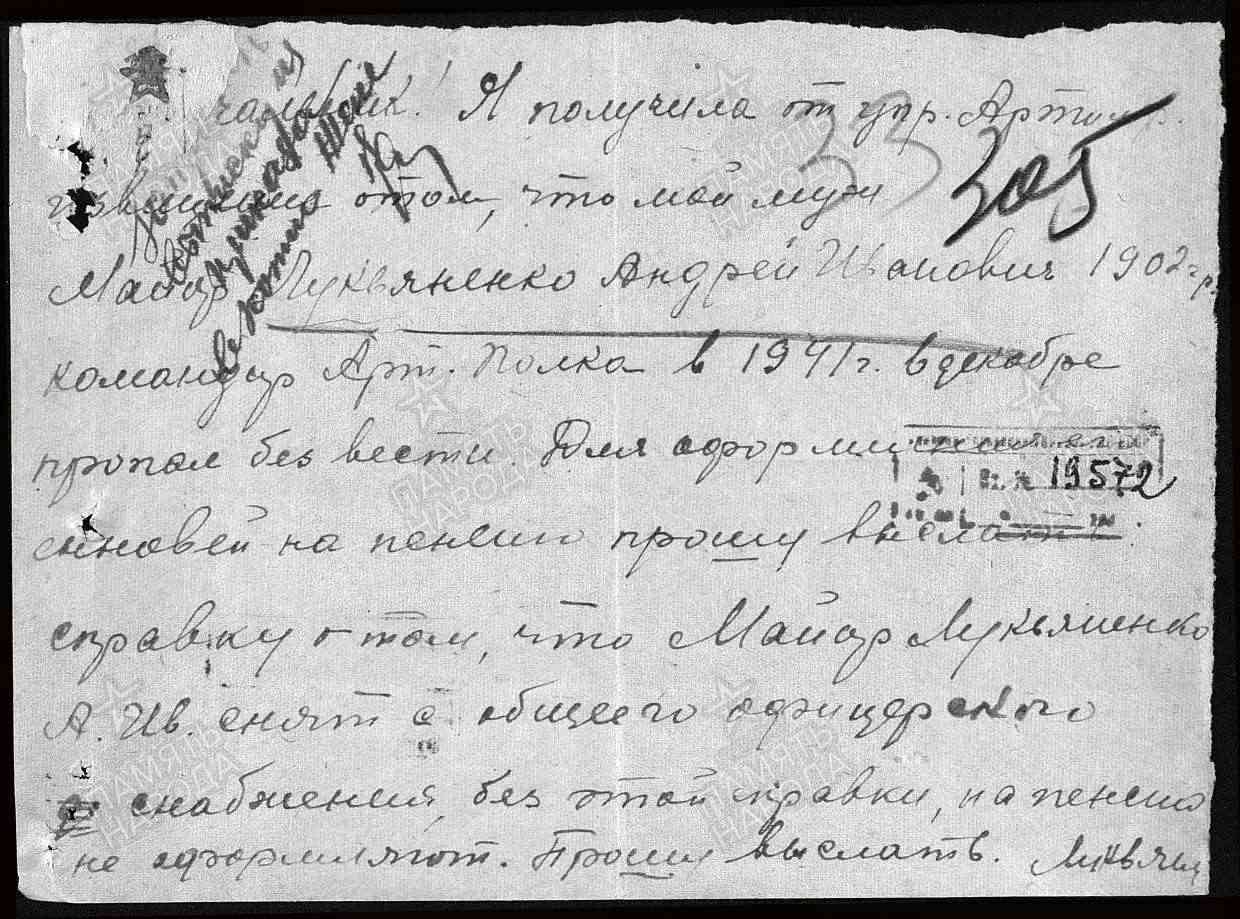 чальник! Я получила от упр. Арти
извищение отом, что мой муж
305
33
Майор Лукьяненко Андрей Иванович 1902 г.р.
командир Арт. Полка в 1941 г. в декабре
пропал без вести. Для оформления
19572
сыновей на пенсию прошу выслать
справку о том, что Майор Лукьяненко
А. Ив. снят с общего офицерского
снабжения, без этой справки, на пенсию
не оформляют. Прошу выслать. Лукьян
ПАМЯТЬ НАРОДА